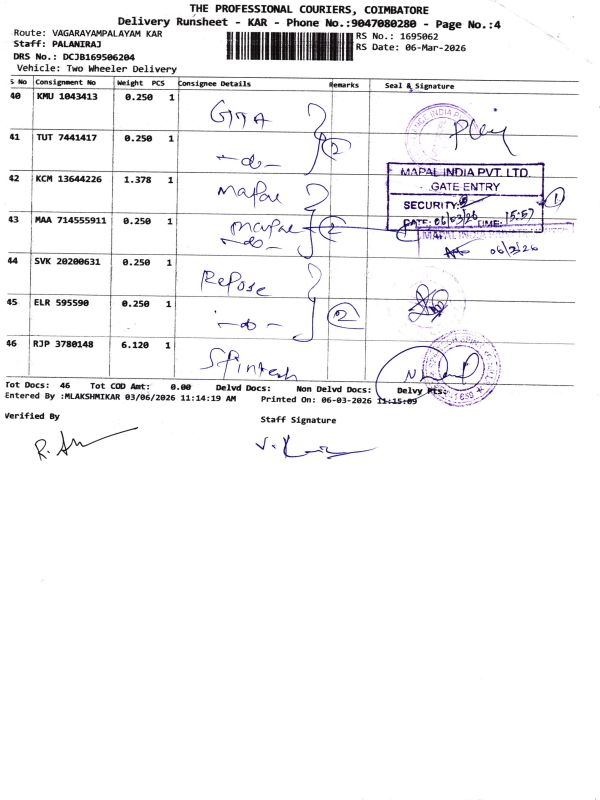 THE PROFESSIONAL COURIERS, COIMBATORE
Delivery Runsheet - KAR - Phone No.:9047080280 - Page No.:4
Route: VAGARAYAMPALAYAM KAR
Staff: PALANIRAJ
DRS No.: DCJB169506204
Vehicle: Two Wheeler Delivery
RS No.: 1695062
RS Date: 06-Mar-2026
S No Consignment No Weight PCS Consignee Details Remarks Seal & Signature
40 KMU 1043413 0.250 1
41 TUT 7441417 0.250 1 -do- 2
42 KCM 13644226 1.378 1 mapal
43 MAA 714555911 0.250 1 mapal -do- 2
44 SVK 20200631 0.250 1 Repose
45 ELR 595590 0.250 1 -do- 2
46 RJP 3780148 6.120 1
MAPAL INDIA PVT. LTD.
GATE ENTRY
SECURITY:
DATE: 06/03/26 TIME: 15:57
1
06/3/26
Tot Docs: 46 Tot COD Amt: 0.00 Delvd Docs: Non Delvd Docs: Delvy Mts:
Entered By :MLAKSHMIKAR 03/06/2026 11:14:19 AM Printed On: 06-03-2026 11:15:09
Verified By
Staff Signature